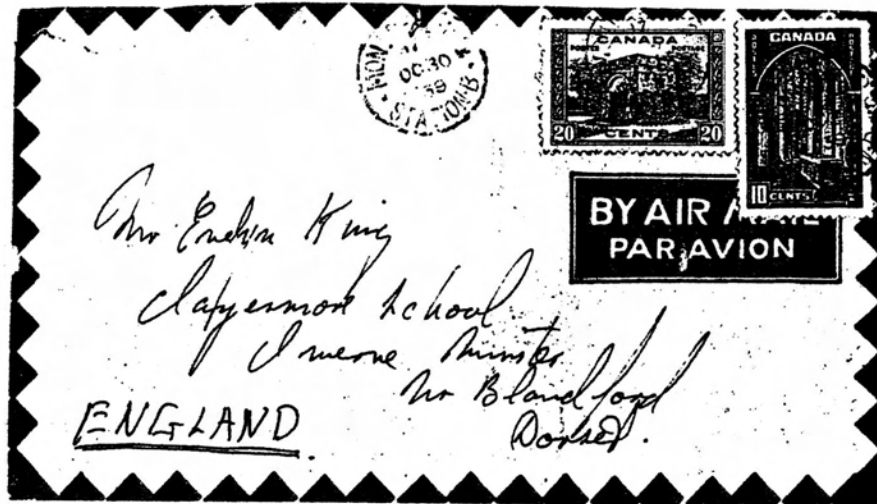 MON
OC 30
39
STATION B
CANADA
POSTES POSTAGE
20 CENTS 20
CANADA
10 CENTS
BY AIR MAIL
PAR AVION
Mr Evelyn King
Clayesmore School
Iwerne Minster
Nr Blandford
Dorset.
ENGLAND